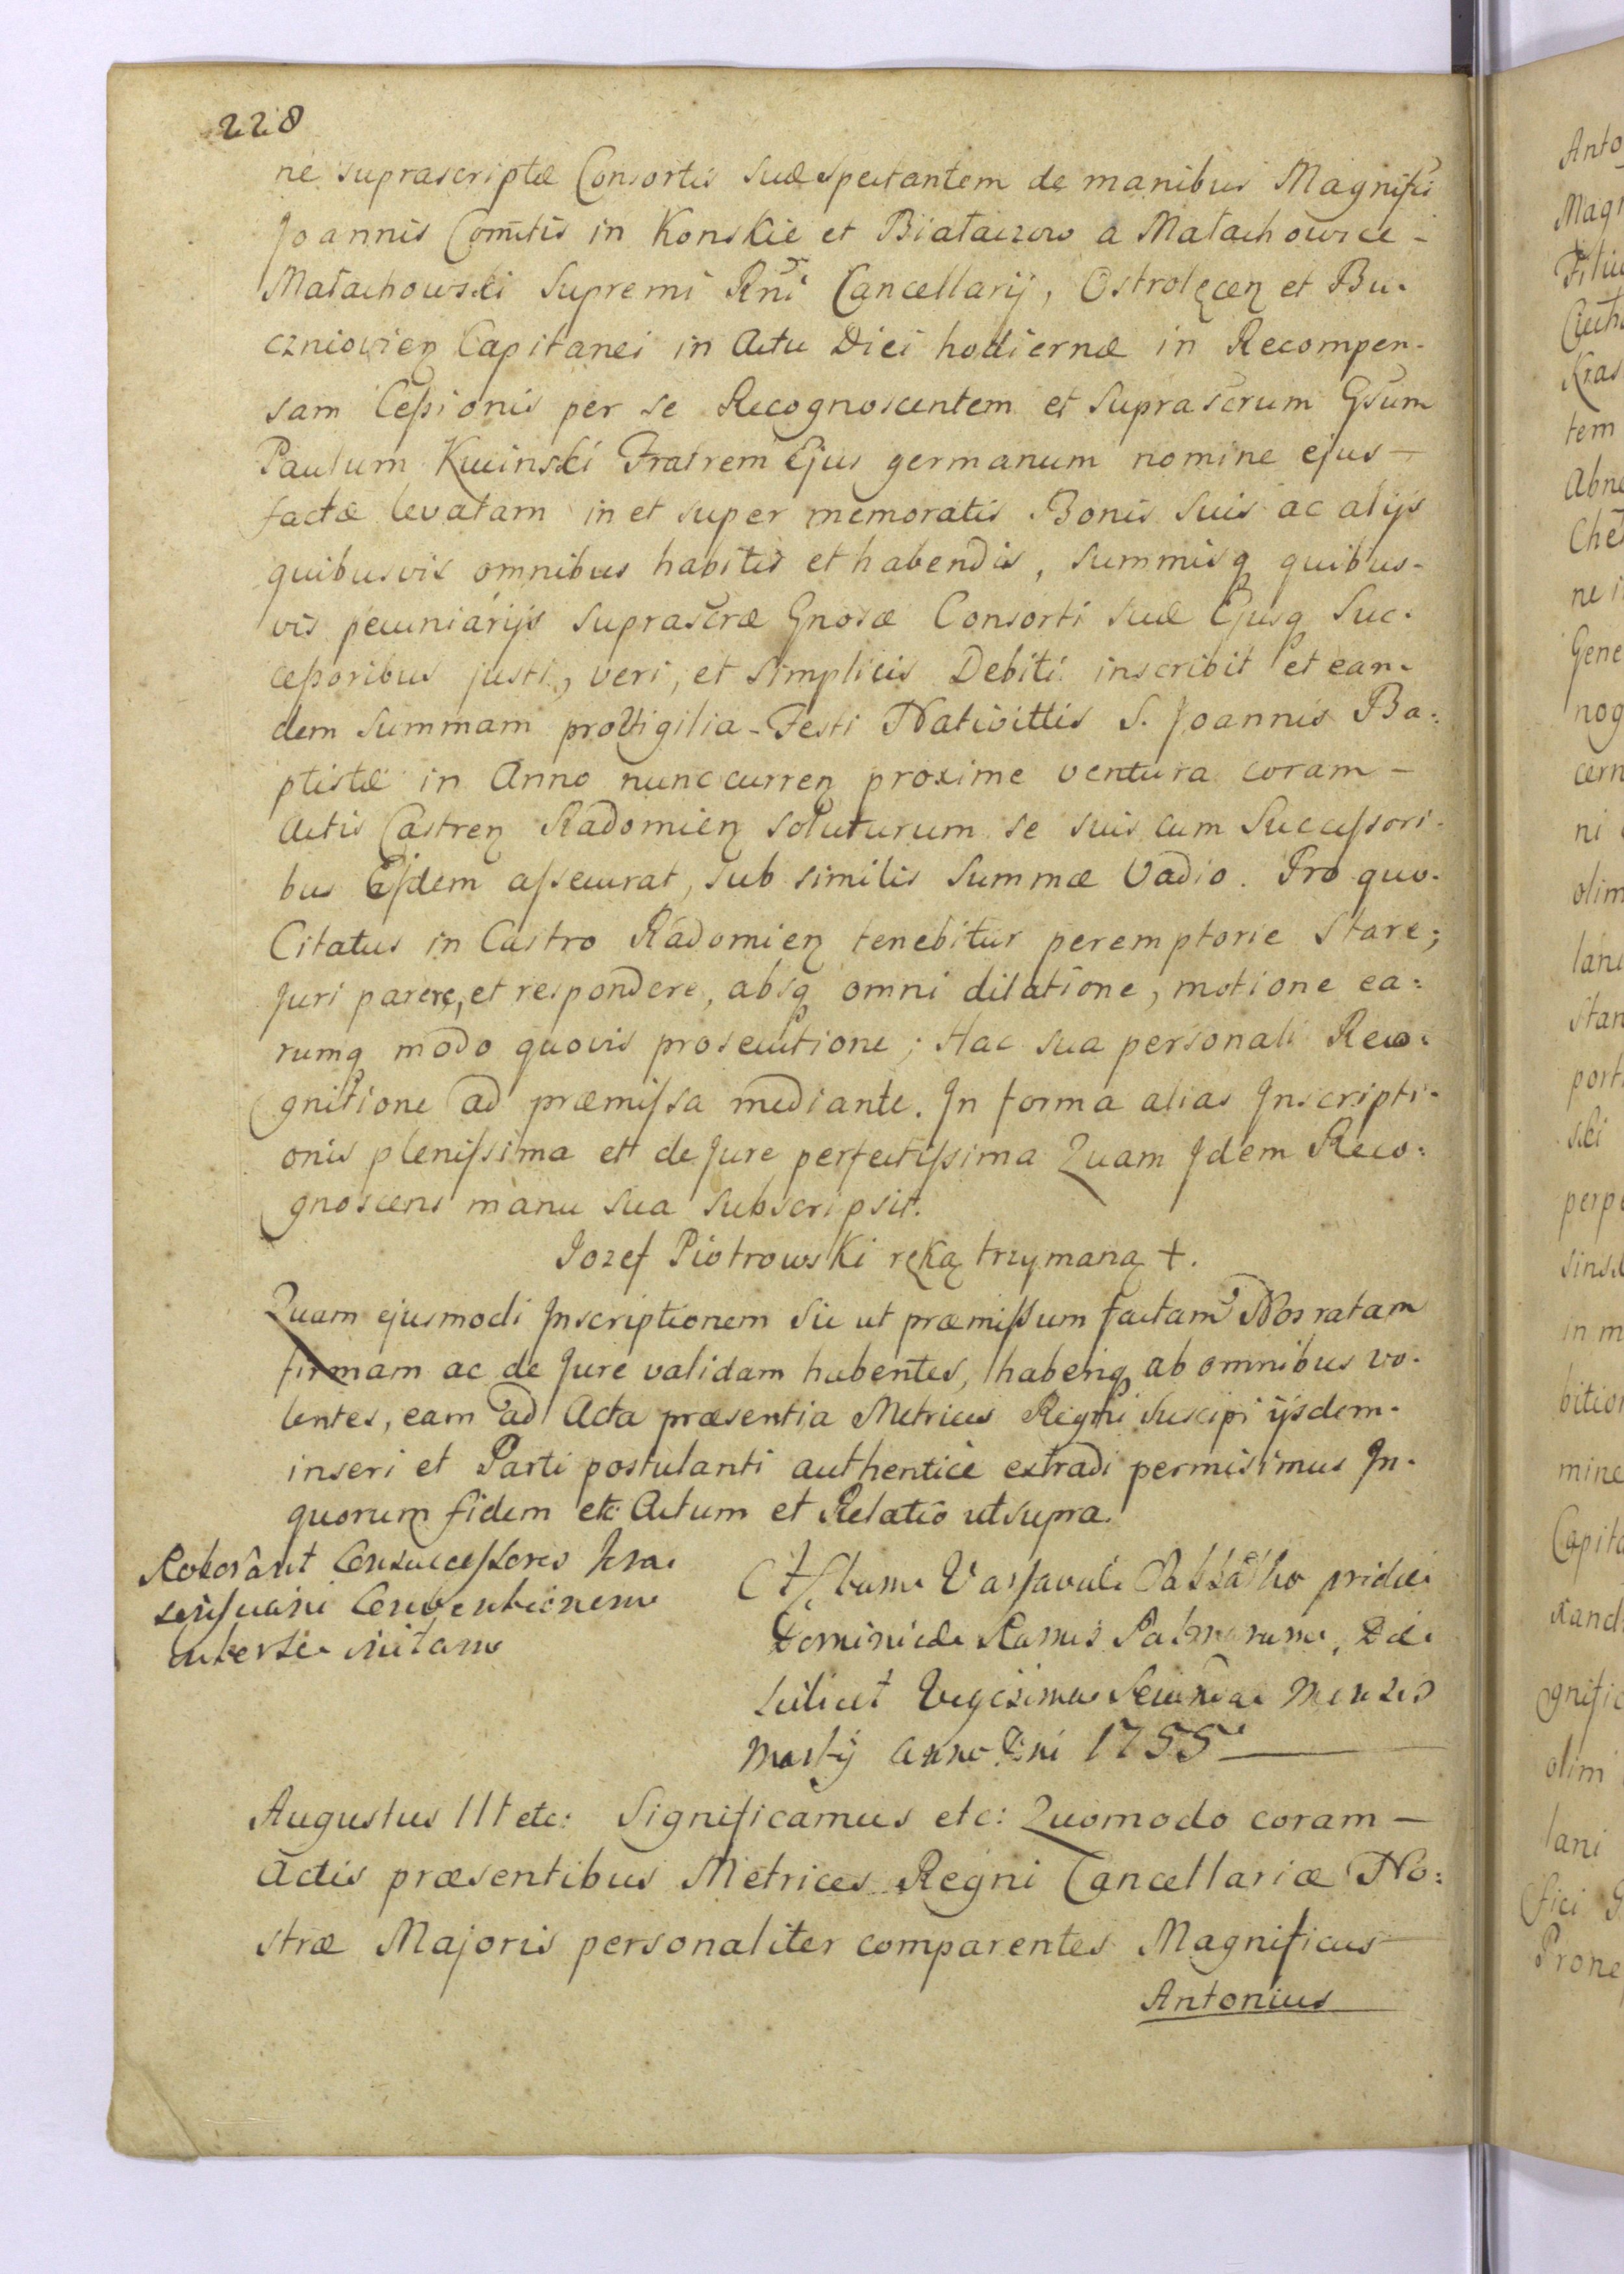 228
ne suprascriptæ Consortis suæ spectantem de manibus Magnifici
Joannis Comitis in Konskie et Białaczow a Małachowice -
Małachowski Supremi Rni Cancellarij, Ostrolęcen et Bu-
czniovien Capitanei in Actu Diei hodiernæ in Recompen-
sam Cessionis per se Recognoscentem et Suprascrum Gsum
Paulum Kucinski Fratrem Ejus germanum nomine ejus -
factæ levatam in et super memoratis Bonis Suis ac alijs
quibusvis omnibus habitis et habendis, summisq quibus-
vis pecuniarijs Suprascræ Gnosæ Consorti suæ Ejusq Suc-
cessoribus justi, veri, et simplicis Debiti inscribit et ean-
dem summam pro Vigilia Festi Nativittis S. Joannis Ba:
ptistæ in Anno nunc curren proxime ventura coram -
Actis Castren Radomien soluturum se suis cum Successori-
bus Eidem assecurat, sub similis Summæ Vadio. Pro quo-
Citatus in Castro Radomien tenebitur peremptorie Stare;
Juri parere, et respondere, absq omni dilatione, motione ea:
rumq modo quovis prosecutione; Hac sua personali Reco:
gnitione ad præmissa mediante. In forma alias Inscripti-
onis plenissima et de Jure perfectissima Quam Idem Reco:
gnoscens manu sua subscripsit.
Jozef Piotrowski ręką trzymaną +.
Quam ejusmodi Inscriptionem Sic ut præmissum factam Nos ratam
firmam ac de Jure validam habentes, haberiq ab omnibus vo-
lentes, eam ad Acta præsentia Metrices Regni suscipi ijsdem-
inseri et Parti postulanti authentice extradi permisimus In-
quorum fidem etc Actum et Relatio ut supra.
Roborant
Conventionem
Actum Varsaviæ Sabbatho pridie
Dominicæ Ramis Palmarum, Die
scilicet Vigesima Secunda Mensis
Martij Anno Dni 1755
Augustus III etc: Significamus etc: Quomodo coram -
Actis præsentibus Metrices Regni Cancellariæ No:
stræ Majoris personaliter comparentes Magnificus
Antonius